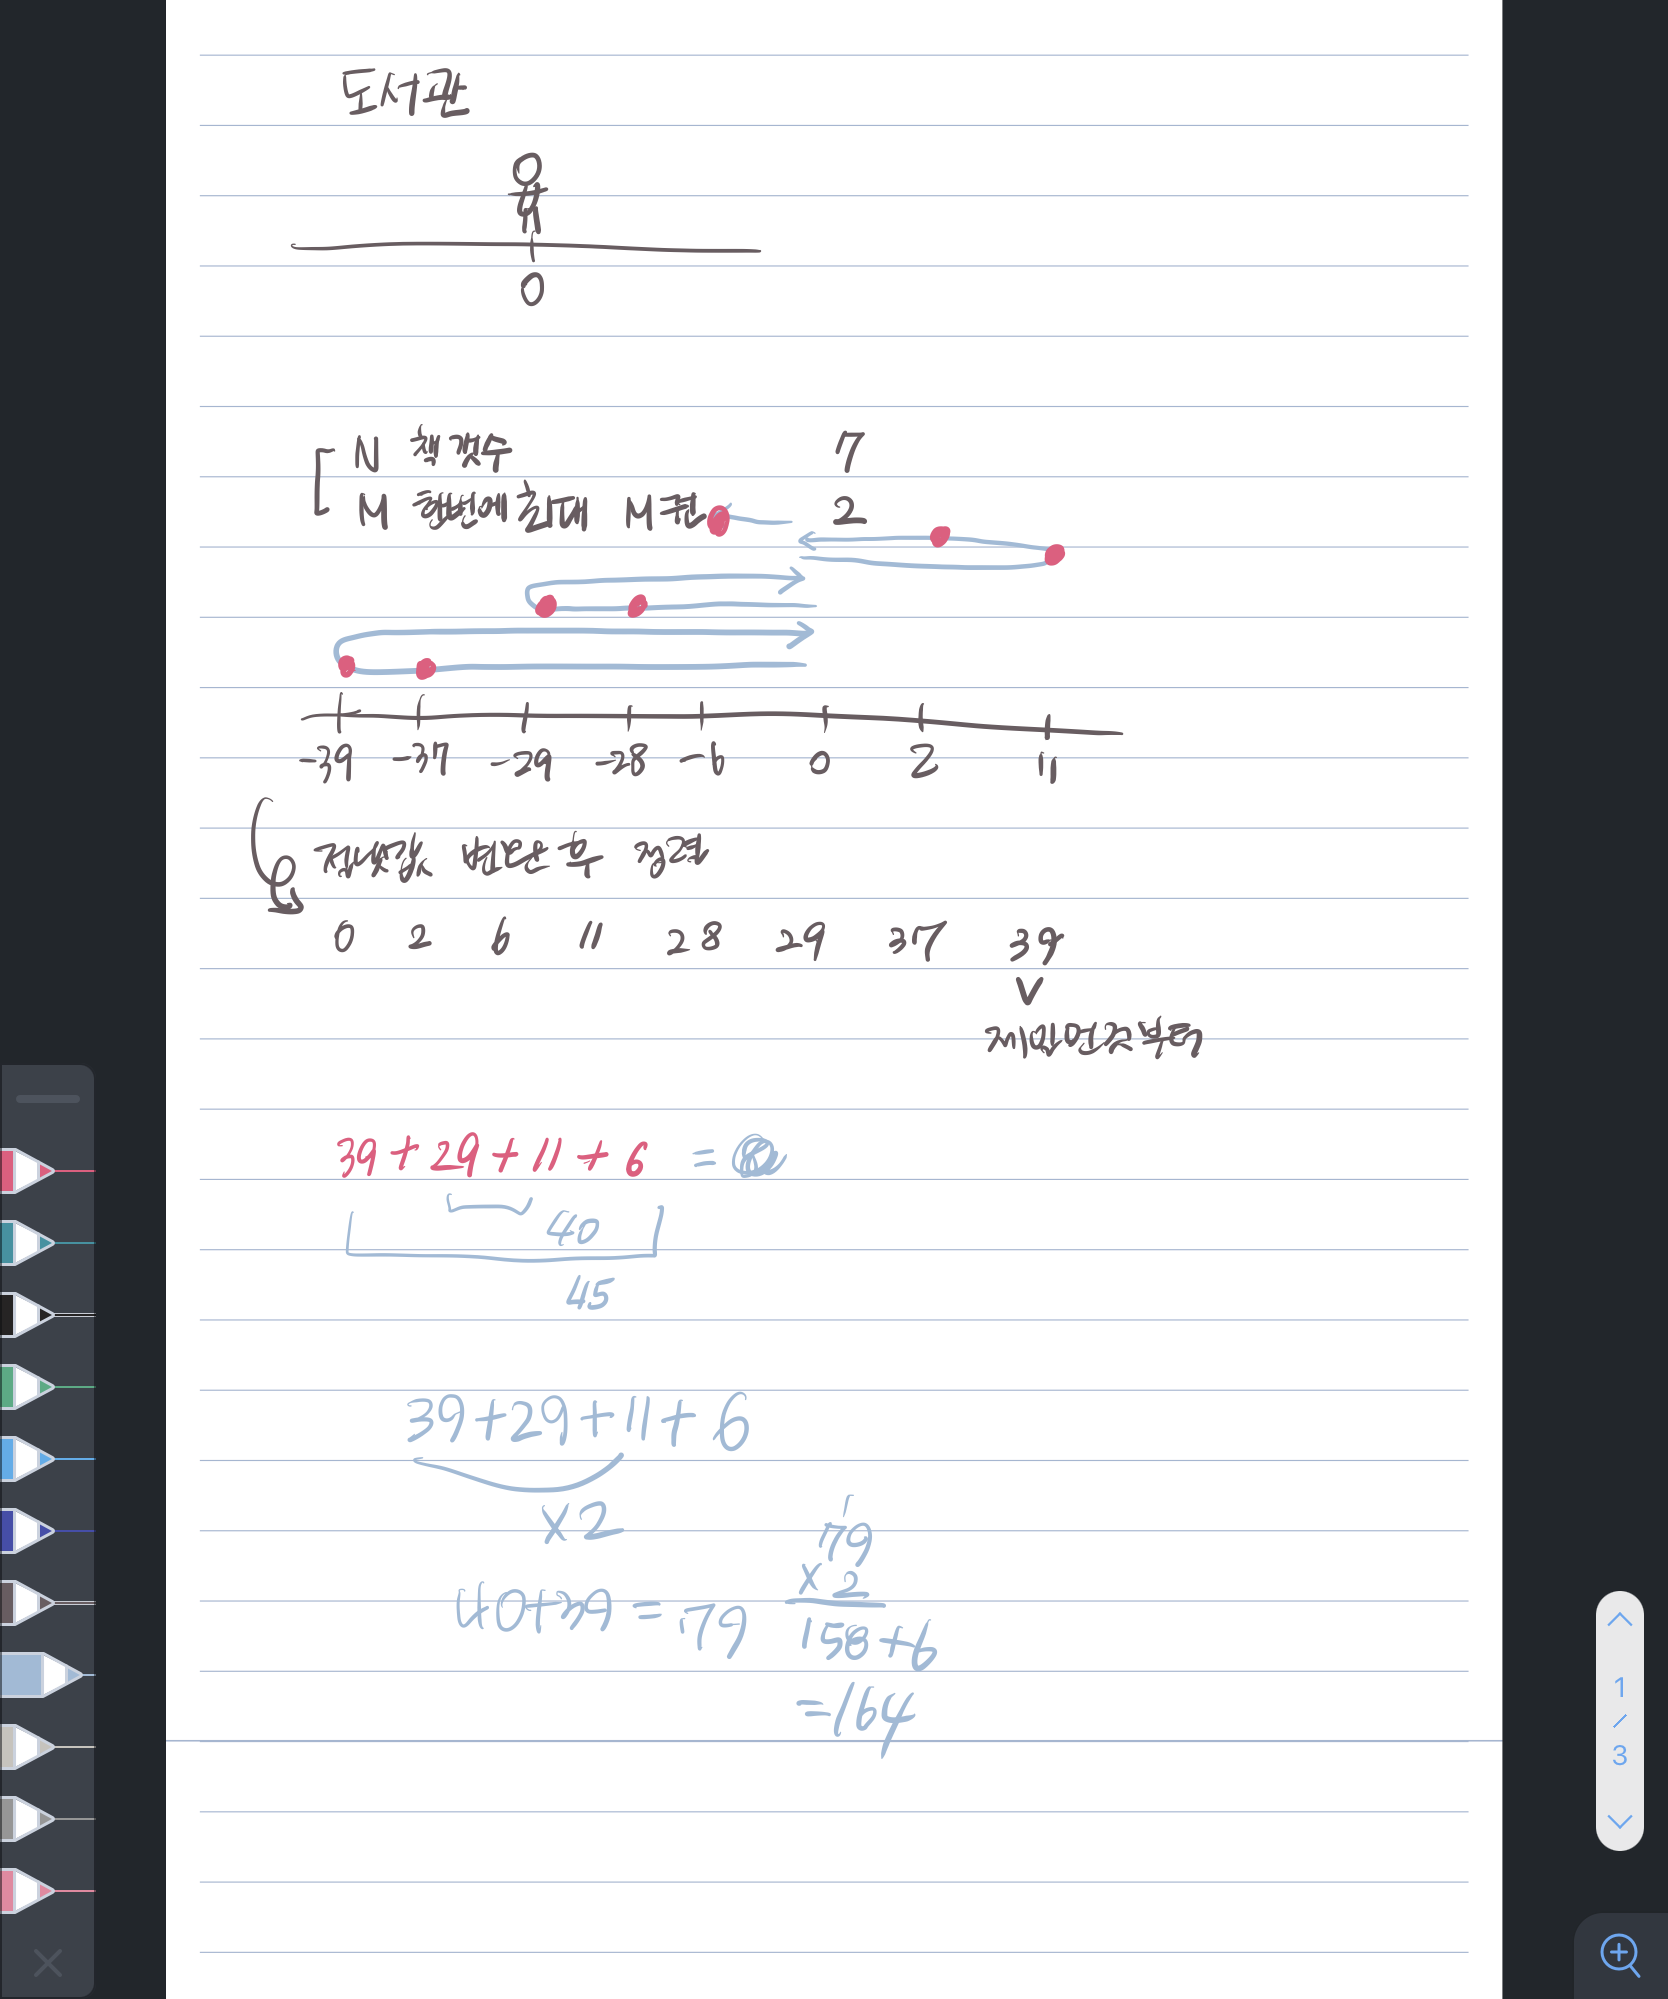 도서관
0
N 책 갯수 7
M 한번에 최대 M권 2
-39 -37 -29 -28 -6 0 2 11
절댓값 변환 후 정렬
0 2 6 11 28 29 37 39
제일 먼곳부터
39 + 29 + 11 + 6 =
40
45
39+29+11+6
x2
1
79
x 2
40+39 = 79
158+6
=164
1
/
3